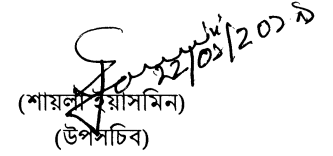 ২২/০১/২০১৯
(শায়লা ইয়াসমিন)
(উপসচিব)